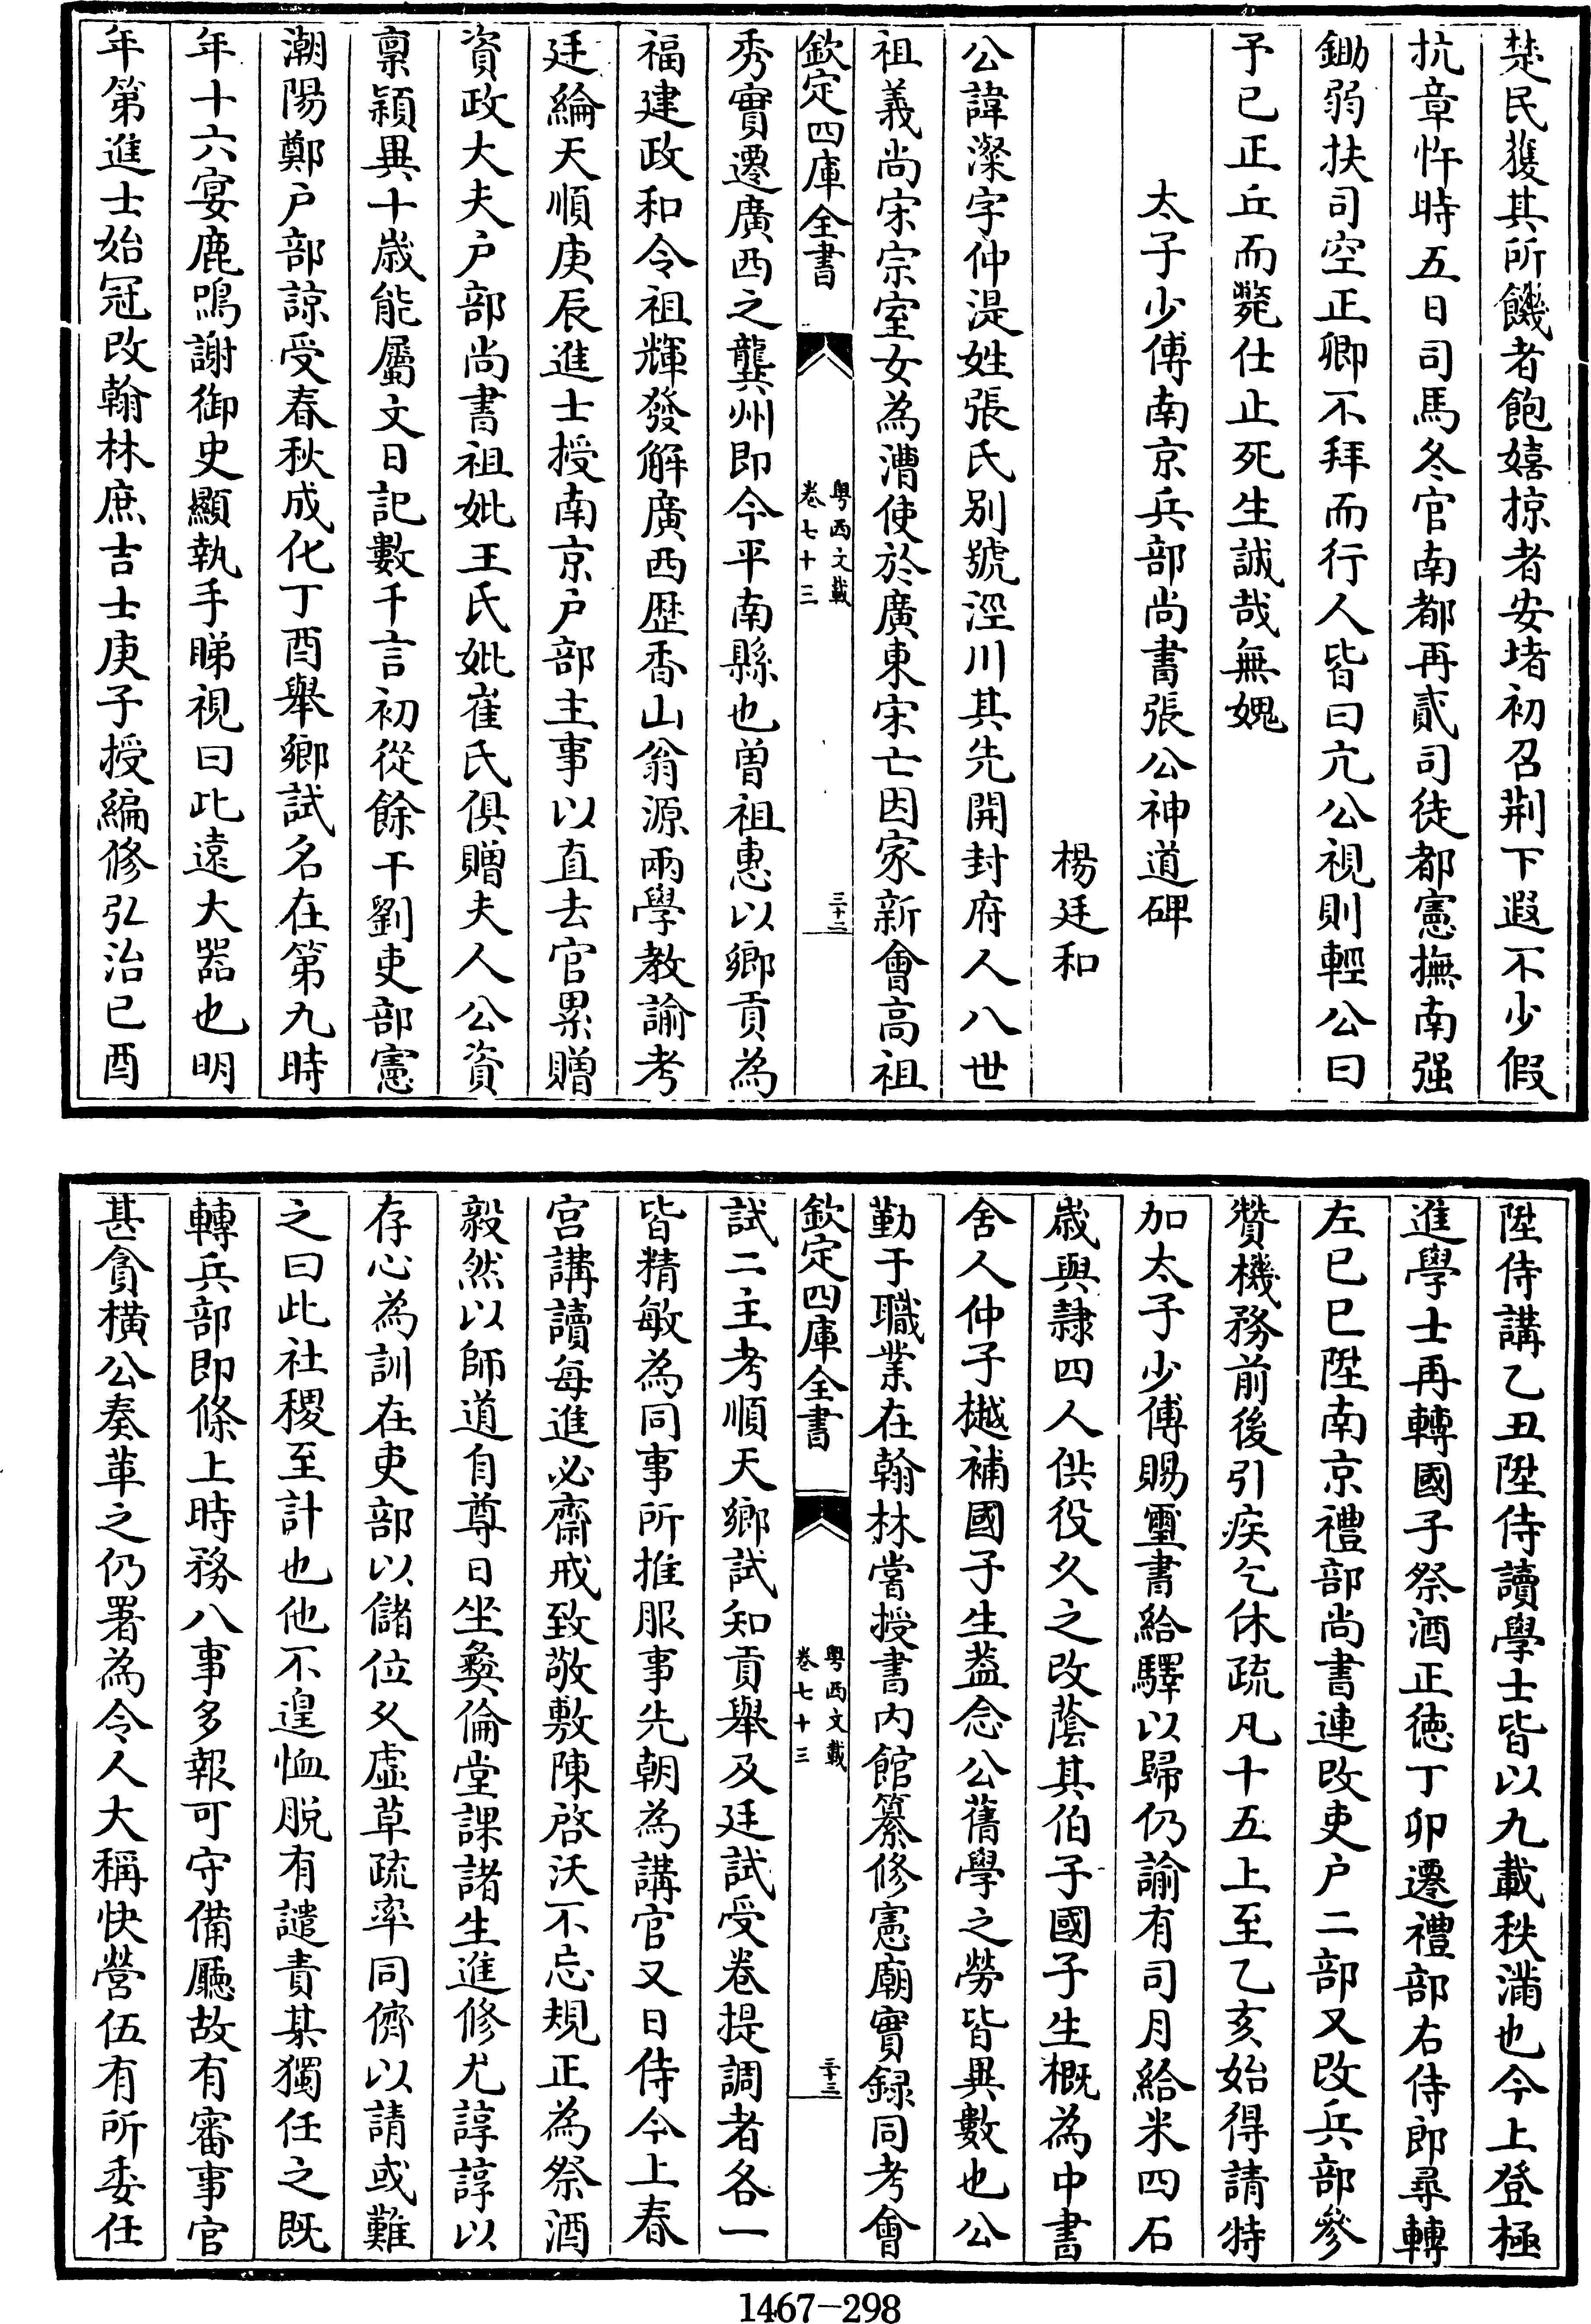 楚民獲其所饑者飽嬉掠者安堵初召荆下遐不少假
抗章忤時五日司馬冬官南都再貳司徒都憲撫南强
鋤弱扶司空正卿不拜而行人皆曰亢公視則輕公曰
予已正丘而斃仕止死生誠哉無媿
太子少傅南京兵部尚書張公神道碑
楊廷和
公諱澯字仲湜姓張氏别號涇川其先開封府人八世
祖義尚宋宗室女為漕使於廣東宋亡因家新會高祖
欽定四庫全書
粤西文載
卷七十三
三十二
秀實遷廣西之龔州即今平南縣也曽祖惠以鄉貢為
福建政和令祖輝發解廣西歴香山翁源兩學教諭考
廷綸天順庚辰進士授南京户部主事以直去官累贈
資政大夫户部尚書祖妣王氏妣崔氏俱贈夫人公資
禀穎異十歲能屬文日記數千言初從餘干劉吏部憲
潮陽鄭户部諒受春秋成化丁酉舉鄉試名在第九時
年十六宴鹿鳴謝御史顯執手睇視曰此遠大器也明
年第進士始冠改翰林庶吉士庚子授編修弘治已酉
陞侍講乙丑陞侍讀學士皆以九載秩滿也今上登極
進學士再轉國子祭酒正徳丁卯遷禮部右侍郎尋轉
左已巳陞南京禮部尚書連改吏户二部又改兵部參
贊機務前後引疾乞休疏凡十五上至乙亥始得請特
加太子少傅賜璽書給驛以歸仍諭有司月給米四石
歲與隷四人供役久之改蔭其伯子國子生概為中書
舍人仲子樾補國子生葢念公舊學之勞皆異數也公
勤于職業在翰林嘗授書内館纂修憲廟實録同考會
欽定四庫全書
粤西文載
卷七十三
三十三
試二主考順天鄉試知貢舉及廷試受卷提調者各一
皆精敏為同事所推服事先朝為講官又日侍今上春
宫講讀每進必齋戒致敬敷陳啓沃不忘規正為祭酒
毅然以師道自尊日坐彝倫堂課諸生進修尤諄諄以
存心為訓在吏部以儲位久虚草疏率同儕以請或難
之曰此社稷至計也他不遑恤脱有譴責某獨任之既
轉兵部即條上時務八事多報可守備廳故有審事官
甚貪横公奏革之仍署為令人大稱快營伍有所委任
1467—298